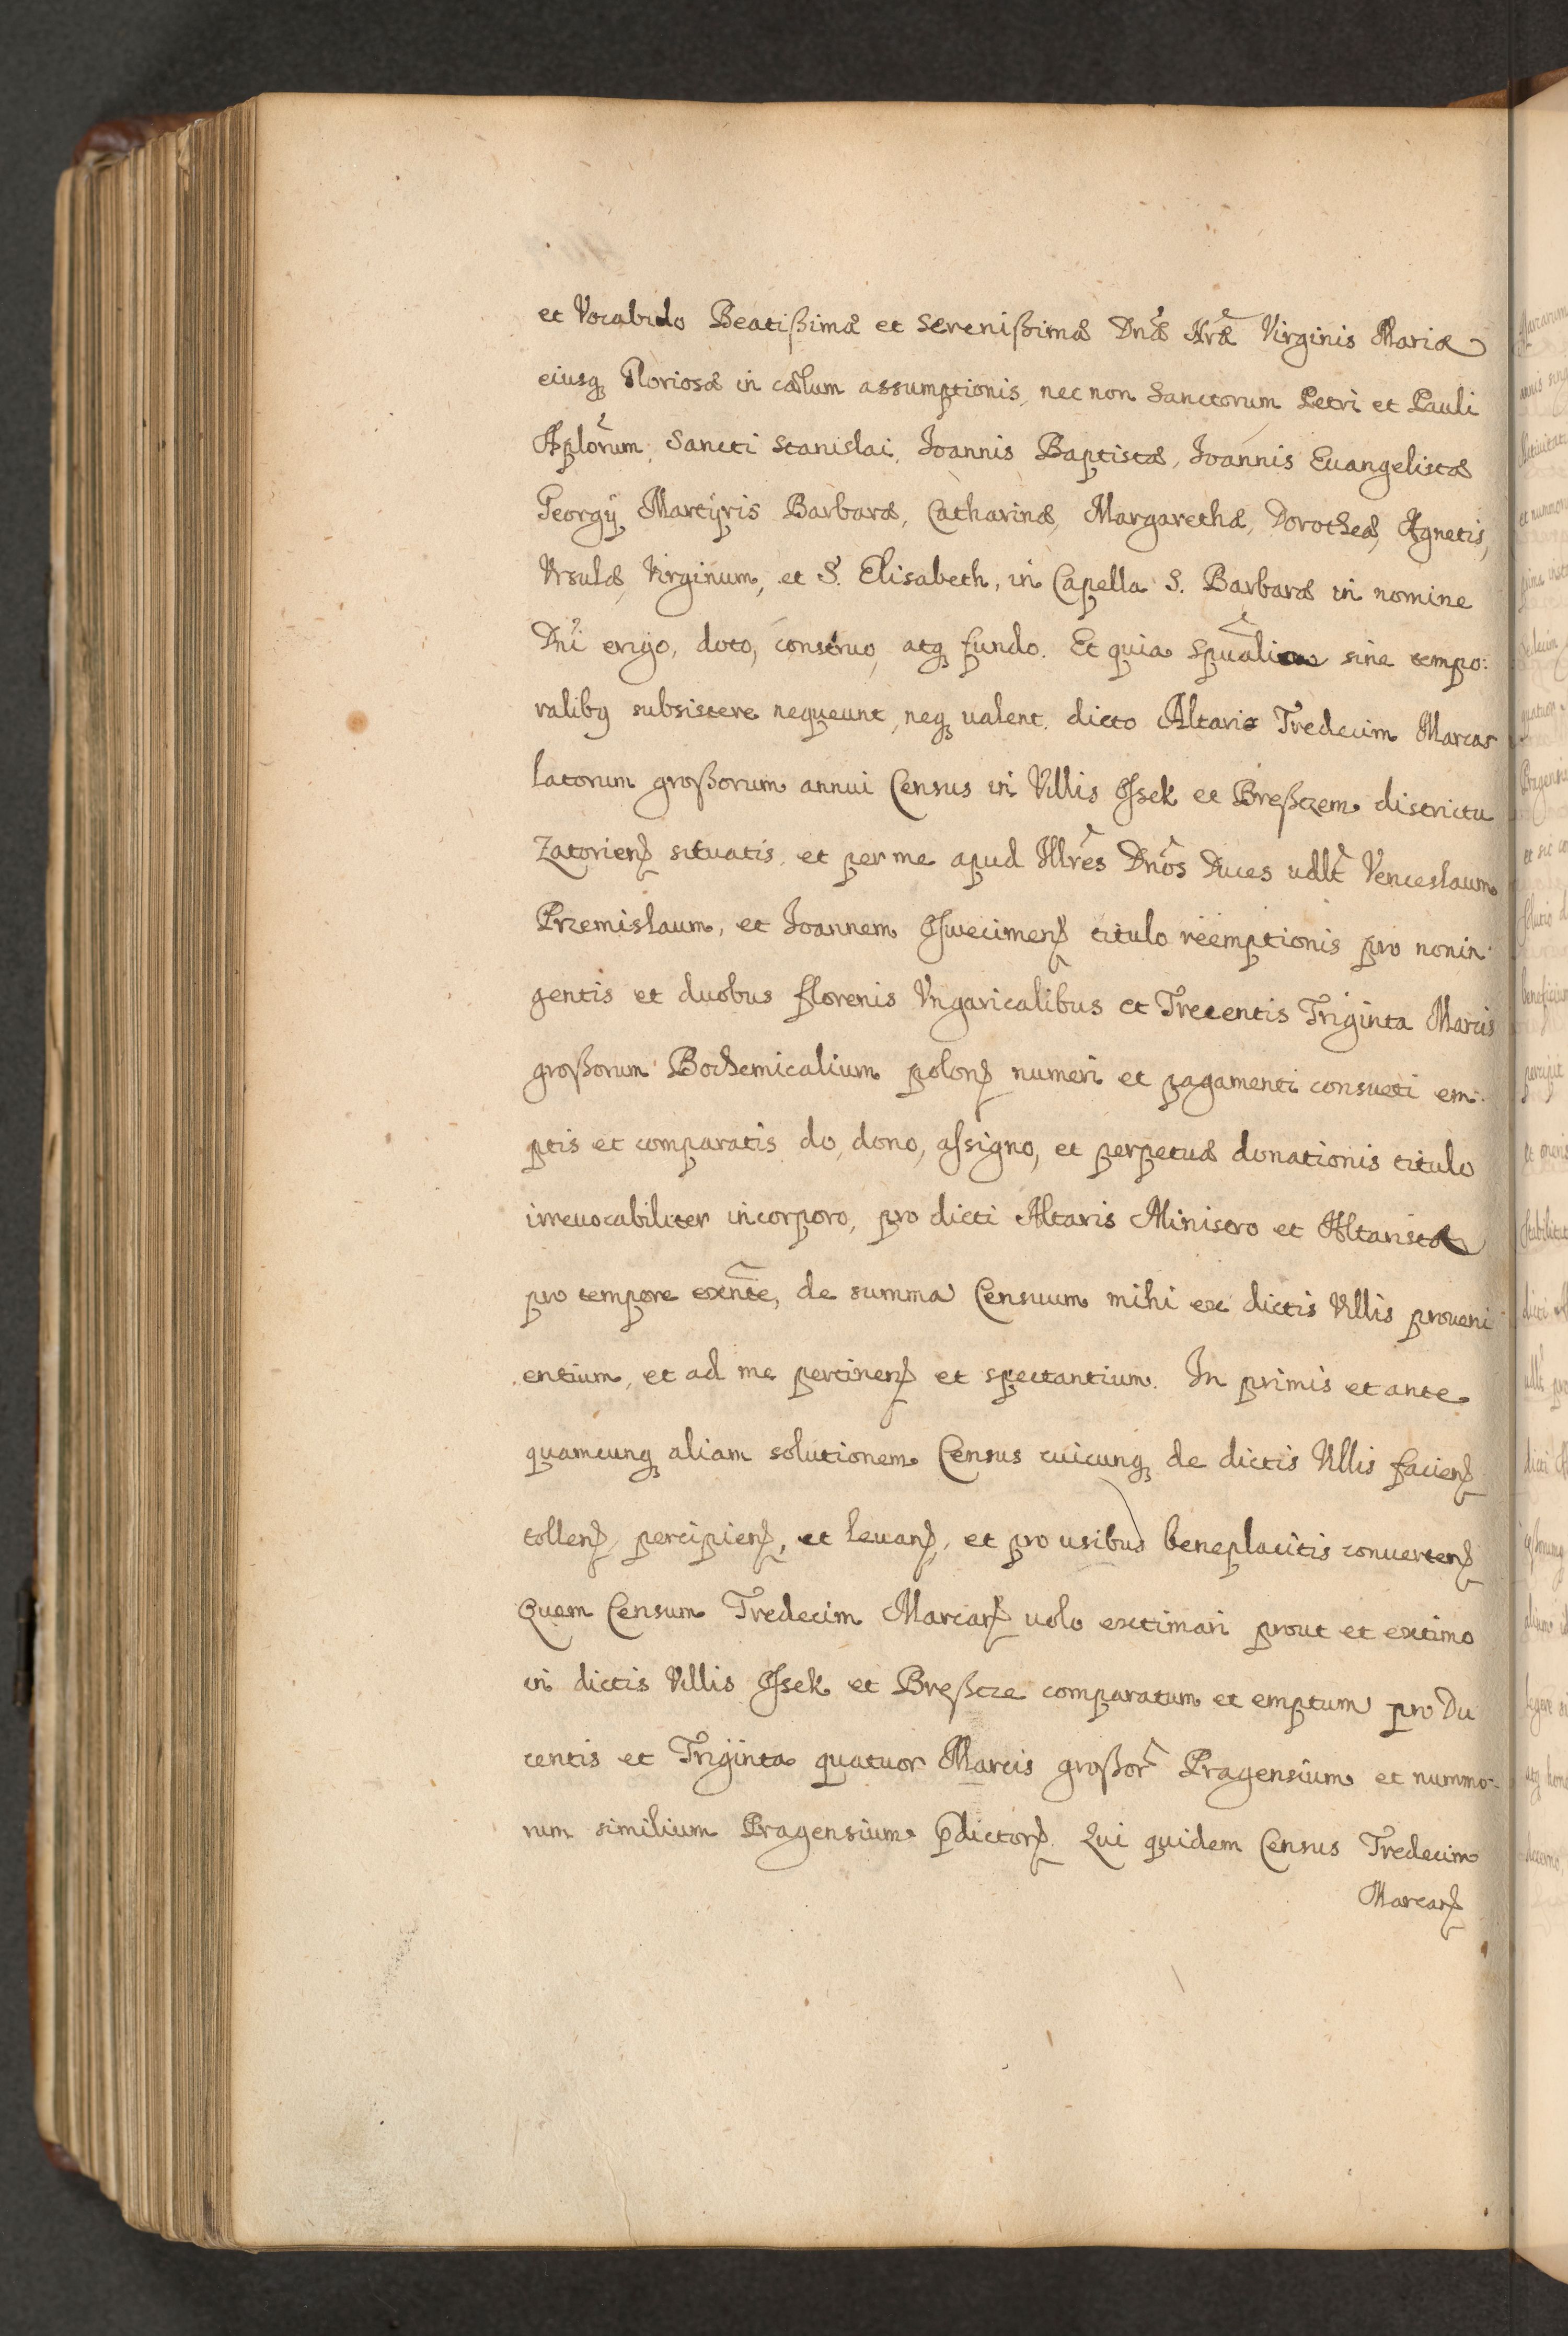 et Vocabulo Beatißimæ et Serenißimæ Dnæ Nræ Virginis Mariæ
eiusq₃ Gloriosæ in cælum assumptionis, nec non Sanctorum Petri et Pauli
Aplorum, Sancti Stanislai, Joannis Baptistæ, Joannis Euangelistæ
Georgÿ Martÿris Barbaræ, Catharinæ, Margarethæ, Dorotheæ, Agnetis,
Vrsulæ, Virginum, et S. Elisabeth, in Capella S. Barbaræ in nomine
Dni erigo, doto, construo, atq₃ fundo. Et quia spualia sine tempo:
ralibꝯ subsistere nequeunt, neq₃ ualent. dicto Altaris Tredecim Marcas
latorum großorum annui Census in Villis Ossek et Breßczem districtu
Zatorienꝭ situatis, et per me apud Illres Dnos Duces udlt Venceslaum
Przemislaum, et Joannem Oswecimenꝭ titulo reemptionis pro nonin
gentis et duobus florenis Vngaricalibus et Trecentis Triginta Marcis
großorum Bochemicalium polonꝭ numeri et pagamenti consueti em:
ptis et comparatis do, dono, assigno, et perpetuæ donationis titulo
irreuocabiliter incorporo, pro dicti Altaris Ministro et Altarista
pro tempore exnte, de summa Censuum mihi ex dictis Villis proueni
entium, et ad me pertinenꝭ et spectantium. In primis et ante
quamcunq₃ aliam solutionem Census cuicunq₃ de dictis Villis facienꝭ
tollenꝭ, percipienꝭ, et leuanꝭ, et pro usibus beneplacitis conuertenꝭ
Quem Censum Tredecim Marcarꝭ uolo exetimari prout et exetimo
in dictis Villis Ossek et Breßcze comparatum et emptum pro Du
centis et Triginta quatuor Marcis großor Pragensium et nummo-
rum similium Pragensium p̄dictorꝭ. Qui quidem Census Tredecim
Marcarꝭ